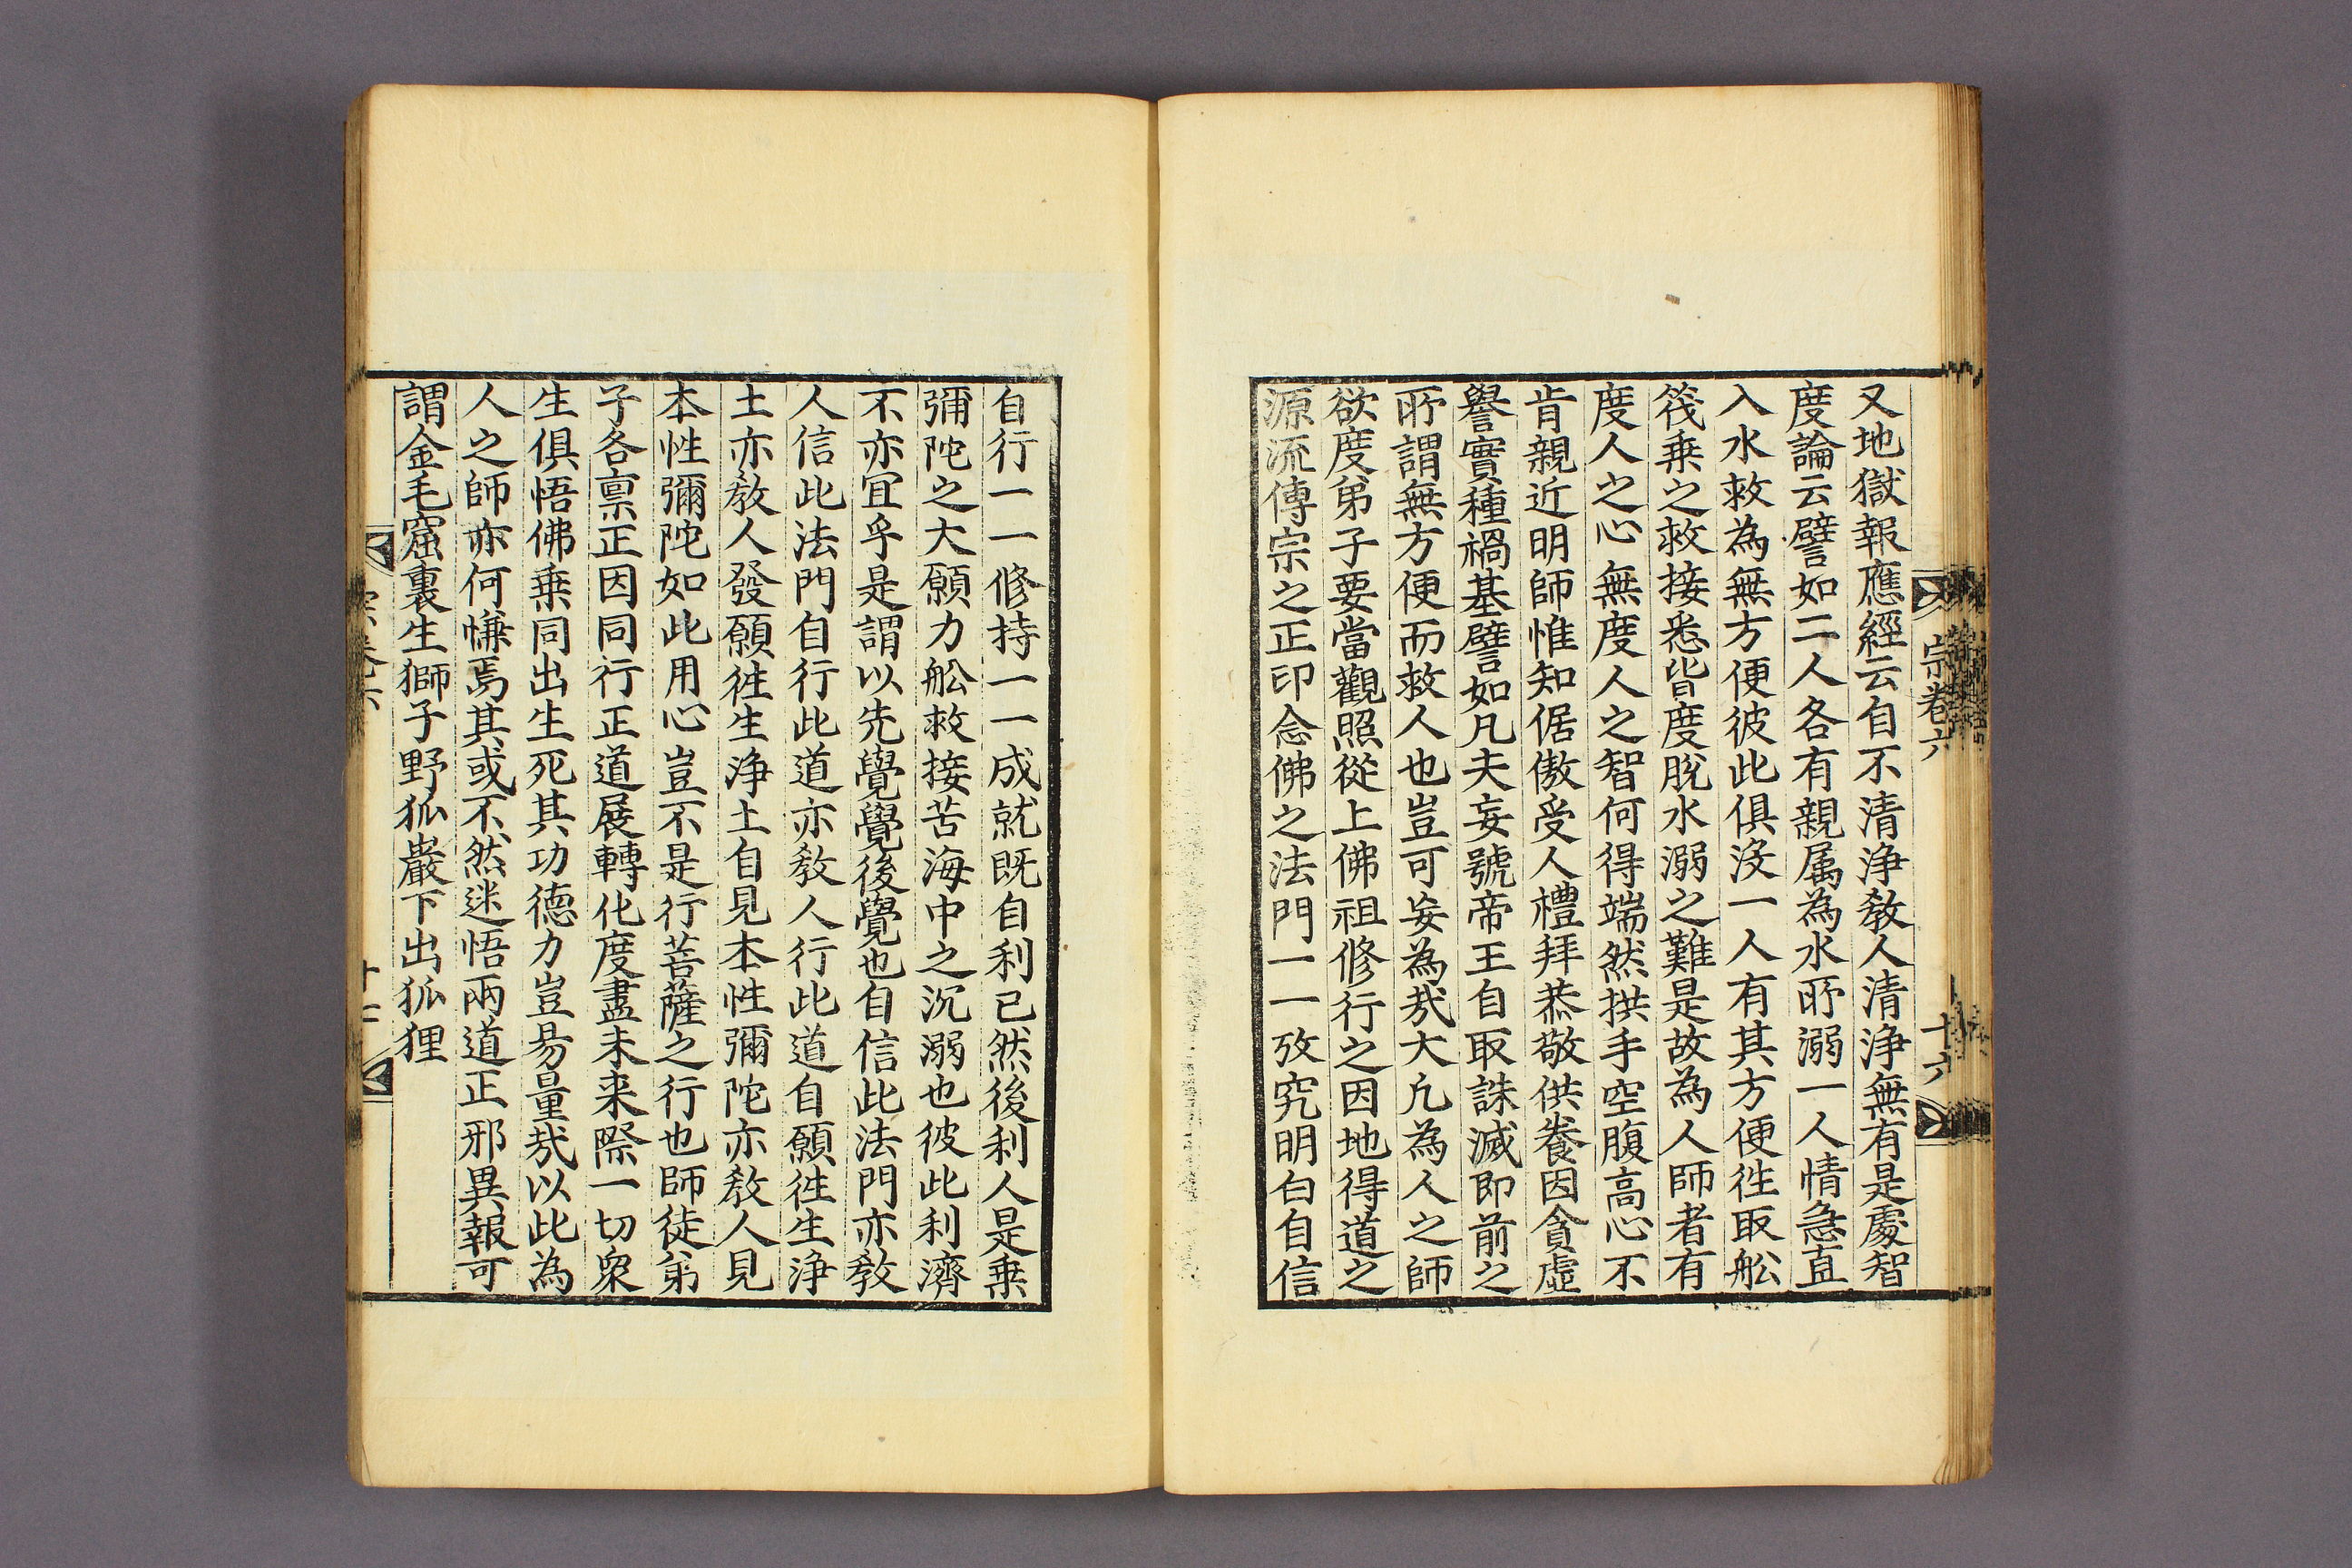 宗卷六
十六
又地獄報應經云自不清淨教人清淨無有是處智
度論云譬如二人各有親属為水所溺一人情急直
入水救為無方便彼此俱沒一人有其方便徃取舩
筏乗之救接悉皆度脫水溺之難是故為人師者有
度人之心無度人之智何得端然拱手空腹高心不
肯親近明師惟知倨傲受人禮拜恭敬供養因貪虛
譽實種禍基譬如凡夫妄號帝王自取誅滅即前之
所謂無方便而救人也豈可妄為㢤大凢為人之師
欲度弟子要當觀照從上佛祖修行之因地得道之
源流傳宗之正印念佛之法門一一攷究明白自信
自行一一修持一一成就既自利已然後利人是乗
彌陀之大願力舩救接苦海中之沉溺也彼此利濟
不亦冝乎是謂以先覺覺後覺也自信此法門亦教
人信此法門自行此道亦教人行此道自願徃生淨
土亦教人發願徃生淨土自見本性彌陀亦教人見
本性彌陀如此用心豈不是行菩薩之行也師徒弟
子各禀正因同行正道展轉化度盡未来際一切衆
生俱悟佛乗同出生死其功德力豈易量㢤以此為
人之師亦何慊焉其或不然迷悟兩道正邪異報可
謂金毛窟裏生獅子野狐巖下出狐狸